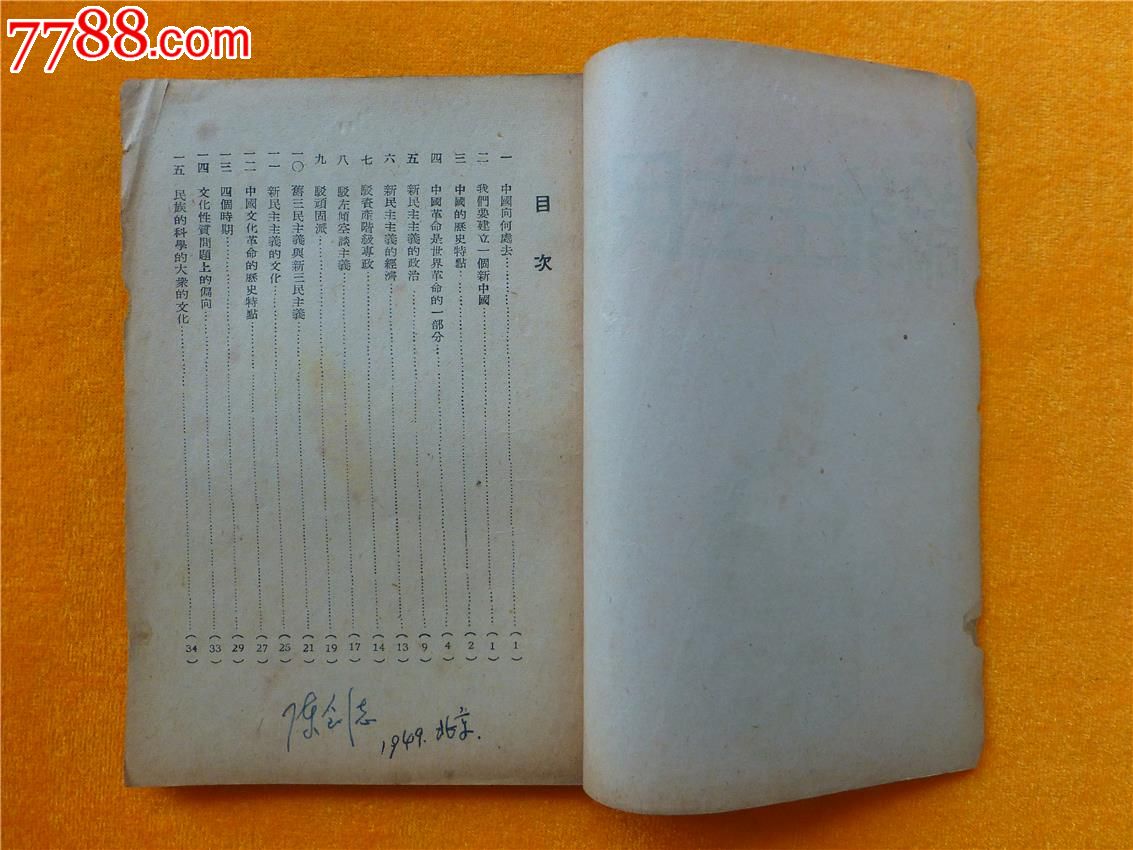 7788.com
目次
一 中國向何處去 (1)
二 我們要建立一個新中國 (1)
三 中國的歷史特點 (2)
四 中國革命是世界革命的一部分 (4)
五 新民主主義的政治 (9)
六 新民主主義的經濟 (13)
七 駁資產階級專政 (14)
八 駁左傾空談主義 (17)
九 駁頑固派 (19)
一〇 舊三民主義與新三民主義 (21)
一一 新民主主義的文化 (25)
一二 中國文化革命的歷史特點 (27)
一三 四個時期 (29)
一四 文化性質問題上的偏向 (33)
一五 民族的科學的大衆的文化 (34)
陈剑志
1949.北京.